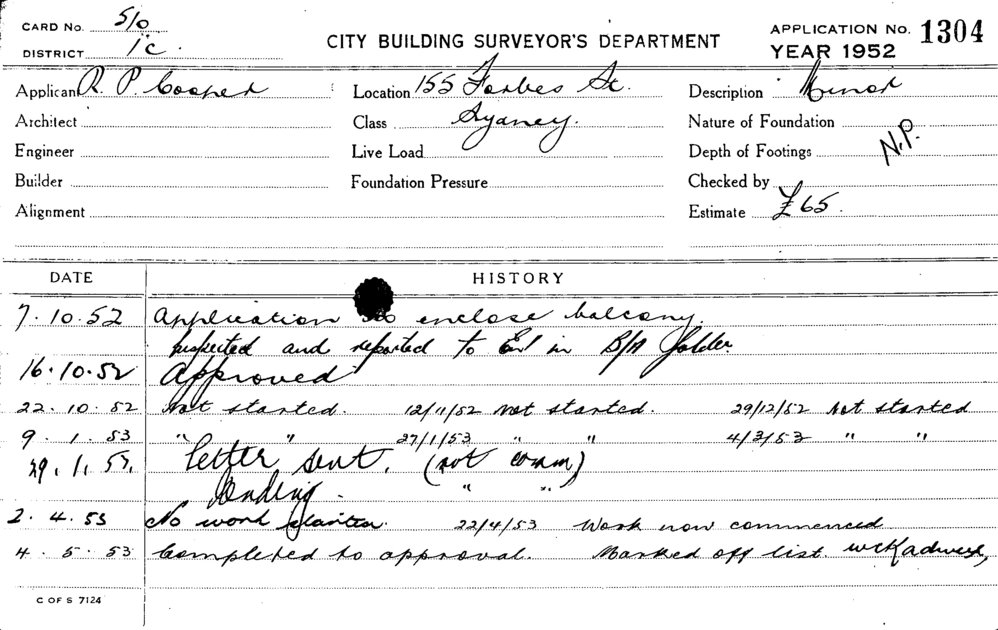 CARD No. 510
DISTRICT 1c.
CITY BUILDING SURVEYOR'S DEPARTMENT
APPLICATION No. 1304
YEAR 1952
Applicant R. P. Cooper
Location 155 Forbes St.
Description Minor
Architect
Class Sydney.
Nature of Foundation
Engineer
Live Load
Depth of Footings N.P.
Builder
Foundation Pressure
Checked by
Alignment
Estimate £65.
DATE HISTORY
7.10.52 Application to enclose balcony.
Inspected and reported to in B/A folder.
16.10.52 Approved
22.10.52 Not started. 12/11/52 not started. 29/12/52 not started
9.1.53 " " 27/1/53 " " 4/3/53 " "
29.1.53. Letter sent. (not comm)
Pending. " "
2.4.53 No work started. 22/4/53 Work now commenced
4.5.53 Completed to approval. Marked off list.
C OF S 7124